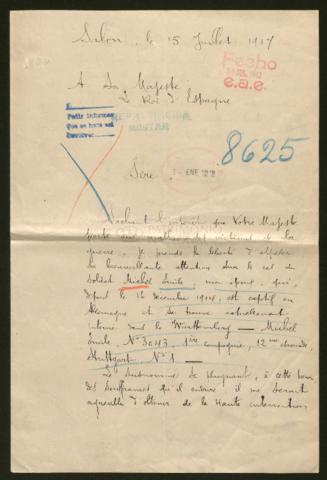 Salon, le 15 Juillet 1917
Fecho
e.a.e.
A Sa Majesté
Le Roi d'Espagne
Pedir informes
Que se hara así
8625
ENE 1918
Sire
Sachant l'intérêt que Votre Majesté
porte aux malheureuses victimes de la
guerre, je prends la liberté d'appeler
sa bienveillante attention sur le cas du
soldat Michel Emile, mon époux, qui,
depuis le 12 décembre 1914, est captif en
Allemagne et se trouve actuellement
interné dans le Wurttemberg — Michel
Emile, N° 3043 1ère compagnie, 12me
Stuttgart N° 1 —
Le susnommé se plaignant, à cette heure
des souffrances qu'il endure, il me serait
agréable d'obtenir de la Haute intervention